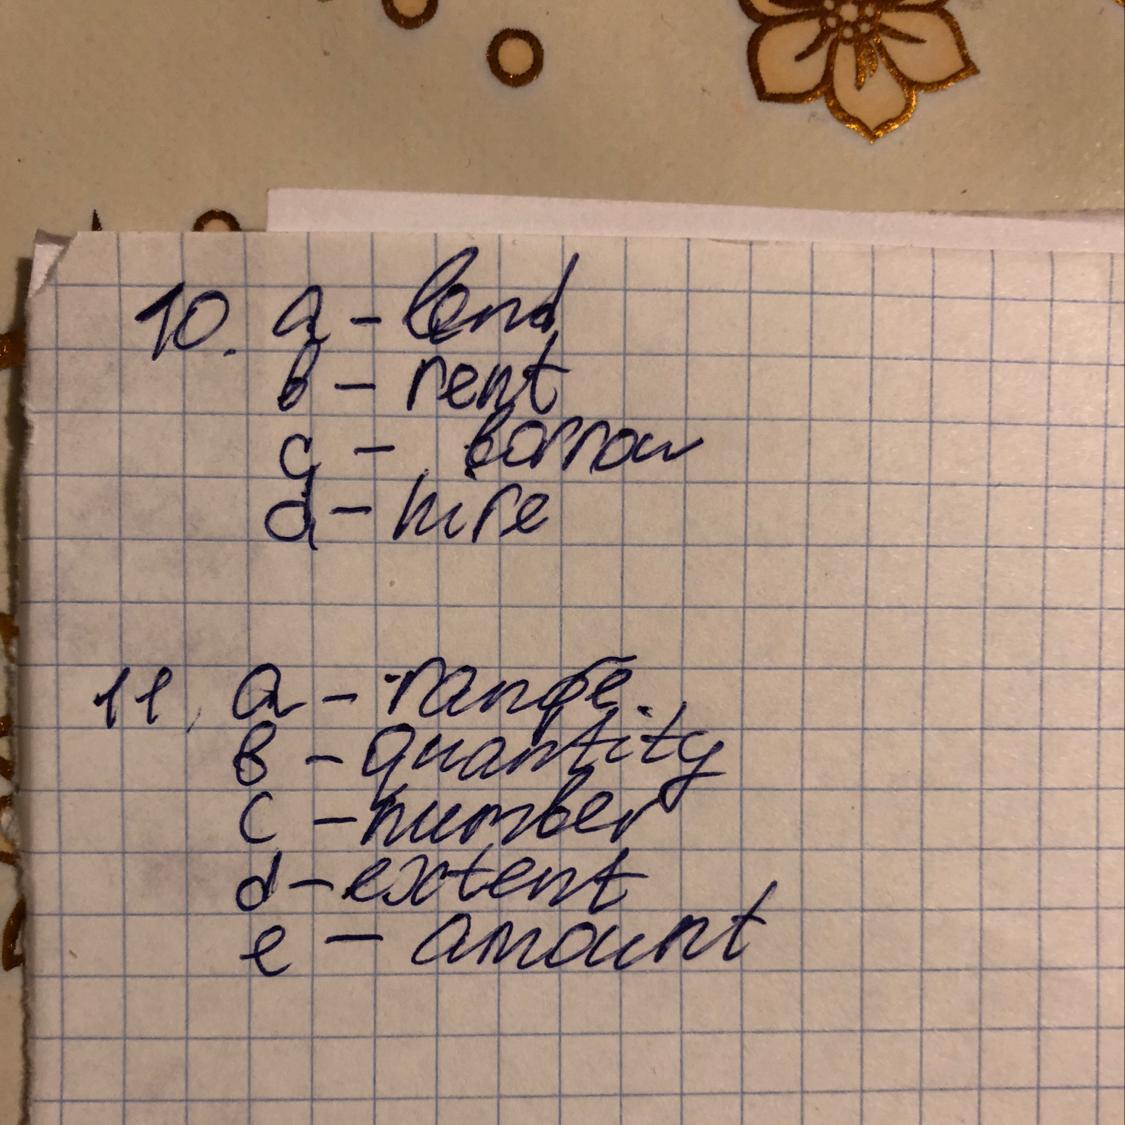 10. a - lend
b - rent
c - borrow
d - hire
11, a - range.
b - quantity
c - number
d - extent
e - amount